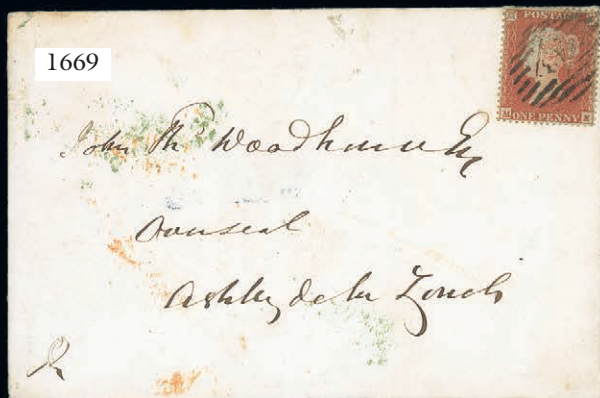 1669
POSTAGE
ONE PENNY
John Thos Woodhouse Esq
Overseal
Ashby de la Zouch